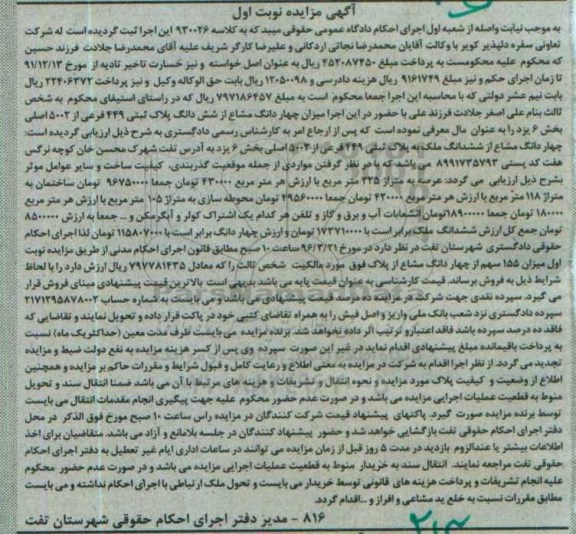 آگهی مزایده نوبت اول
به موجب نیابت واصله از شعبه اول اجرای احکام دادگاه عمومی حقوقی میبد که به کلاسه ۹۳۰۰۲۶ این اجرا ثبت گردیده است له شرکت
تعاونی سفره دلپذیر کویر با وکالت آقایان محمدرضا نجاتی اردکانی و علیرضا کارگر شریف علیه آقای محمدرضا جلادت فرزند حسین
که محکوم علیه محکومست به پرداخت مبلغ ۴۵۲۰۸۷۴۵۰ ریال به عنوان اصل خواسته و نیز خسارت تاخیر تادیه از مورخ ۹۱/۱۲/۱۳
تا زمان اجرای حکم و نیز مبلغ ۹۱۶۱۷۴۹ ریال هزینه دادرسی و ۱۲۰۵۰۰۹۸ ریال بابت حق الوکاله وکیل و نیز پرداخت ۲۲۴۰۶۳۷۲ ریال
بابت نیم عشر دولتی که با محاسبه این اجرا جمعا محکوم است به مبلغ ۷۹۷۱۸۶۴۵۷ ریال که در راستای استیفای محکوم به شخص
ثالث بنام علی اصغر جلادت فرزند علی با حضور در این اجرا میزان چهار دانگ مشاع از شش دانگ پلاک ثبتی ۴۴۹ فرعی از ۵۰۰۲ اصلی
بخش ۶ یزد را به عنوان مال معرفی نموده است که پس از ارجاع امر به کارشناس رسمی دادگستری به شرح ذیل ارزیابی گردیده است:
چهار دانگ مشاع از ششدانگ ملک به پلاک ثبتی ۴۴۹ فرعی از ۵۰۰۲ اصلی بخش ۶ یزد به آدرس تفت شهرک محسن خان کوچه نرگس
هفت کد پستی ۸۹۹۱۷۳۵۷۹۳ می باشد که با در نظر گرفتن مواردی از جمله موقعیت گذربندی، کیفیت ساخت و سایر عوامل موثر
بشرح ذیل ارزیابی می گردد: عرصه به متراژ ۲۲۵ متر مربع با ارزش هر متر مربع ۴۳۰۰۰۰ تومان جمعا ۹۶۷۵۰۰۰۰ تومان ساختمان به
متراژ ۱۱۸ متر مربع با ارزش هر متر مربع ۴۲۰۰۰۰ تومان جمعا ۴۹۵۶۰۰۰۰ تومان محوطه سازی به متراژ ۱۰۵ متر مربع با ارزش هر متر مربع
۱۸۰۰۰۰ تومان جمعا ۱۸۹۰۰۰۰۰ تومان انشعابات آب و برق و گاز و تلفن هر کدام یک اشتراک کولر و آبگرمکن و ... جمعا به ارزش ۸۵۰۰۰۰۰
تومان جمع کل ارزش ششدانگ ملک برابر است با ۱۷۳۷۱۰۰۰۰ تومان و ارزش چهار دانگ برابر است با ۱۱۵۸۰۷۰۰۰ تومان لذا اجرای احکام
حقوقی دادگستری شهرستان تفت در نظر دارد در مورخ ۹۶/۳/۲۱ ساعت ۱۰ صبح مطابق قانون اجرای احکام مدنی از طریق مزایده نوبت
اول میزان ۱۵۵ سهم از چهار دانگ مشاع از پلاک فوق مورد مالکیت شخص ثالث را که معادل ۷۹۷۷۸۱۴۳۵ ریال ارزش دارد را با لحاظ
شرایط ذیل به فروش برساند. قیمت کارشناسی به عنوان قیمت پایه می باشد بدیهی است بالاترین قیمت پیشنهادی مبنای فروش قرار
می گیرد. سپرده نقدی جهت شرکت در مزایده ده درصد قیمت پیشنهادی می باشد و می بایست به شماره حساب ۲۱۷۱۲۹۵۸۷۸۰۰۲
سپرده دادگستری نزد شعب بانک ملی واریز و اصل فیش را به همراه تقاضای کتبی خود در پاکت قرار داده و تحویل نمایند و تقاضایی که
فاقد ده درصد سپرده باشد فاقد اعتبار و ترتیب اثر داده نخواهد شد. برنده مزایده می بایست ظرف مدت معین (حداکثر یک ماه) نسبت
به پرداخت باقیمانده مبلغ پیشنهادی اقدام نماید در غیر این صورت سپرده وی پس از کسر هزینه مزایده به نفع دولت ضبط و مزایده
تجدید می گردد. از نظر اجرا اقدام به شرکت در مزایده به معنی اطلاع و رعایت کامل و قبول شرایط و مقررات حاکم بر مزایده و همچنین
اطلاع از وضعیت و کیفیت پلاک مورد مزایده و نحوه انتقال و تشریفات و هزینه های مرتبط با آن می باشد ضمنا انتقال سند و تحویل
منوط به قطعیت عملیات اجرایی مزایده می باشد و در صورت عدم حضور محکوم علیه جهت پیگیری انجام مقدمات انتقال می بایست
توسط برنده مزایده صورت گیرد. پاکتهای پیشنهاد قیمت شرکت کنندگان در مزایده راس ساعت ۱۰ صبح مورخ فوق الذکر در محل
دفتر اجرای احکام حقوقی تفت بازگشایی خواهد شد و حضور پیشنهاد کنندگان در جلسه بلامانع و آزاد می باشد. متقاضیان برای اخذ
اطلاعات بیشتر یا عندالزوم بازدید در مدت ۵ روز قبل از زمان مزایده می توانند در ساعات اداری ایام غیر تعطیل به دفتر اجرای احکام
حقوقی تفت مراجعه نمایند. انتقال سند به خریدار منوط به قطعیت عملیات اجرایی مزایده می باشد و در صورت عدم حضور محکوم
علیه انجام تشریفات و پرداخت هزینه های قانونی توسط خریدار می بایست و تحول ملک ارتباطی با اجرای احکام نداشته و می بایست
مطابق مقررات نسبت به خلع ید مشاعی و افراز و ... اقدام گردد.
۸۱۶ - مدیر دفتر اجرای احکام حقوقی شهرستان تفت